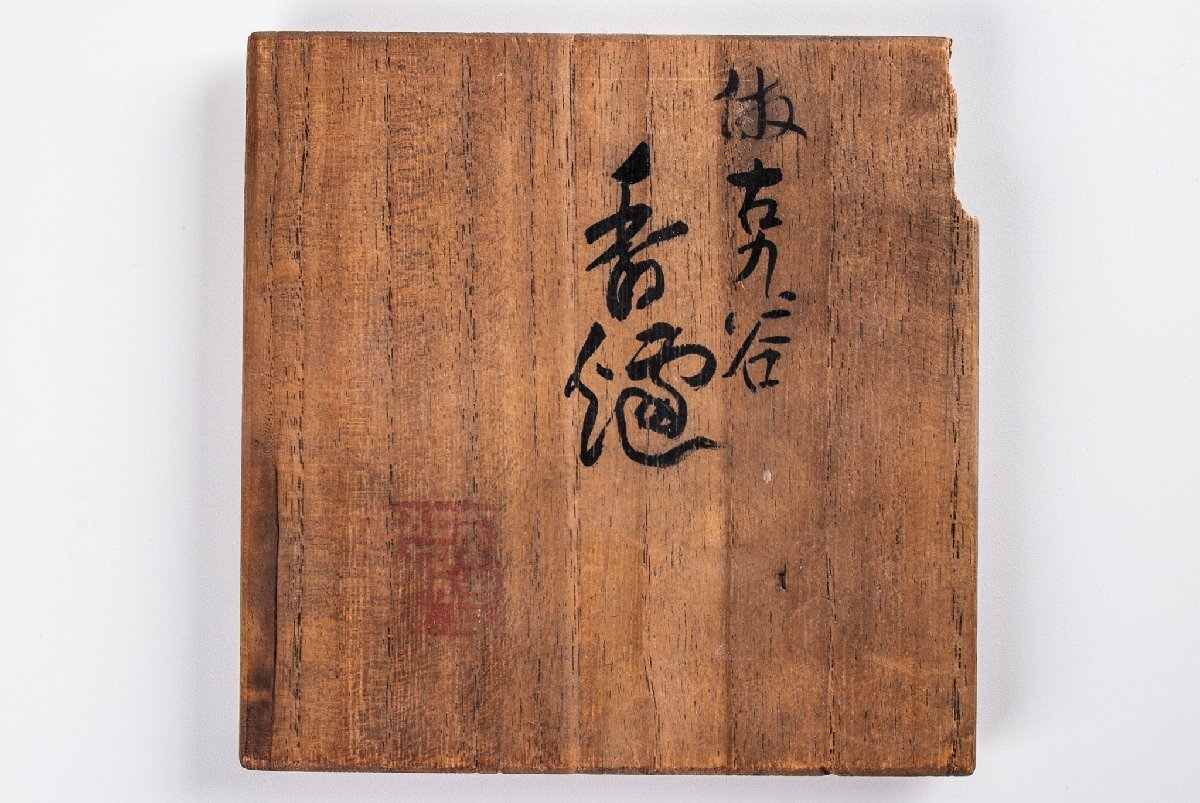 倣古九谷
香爐